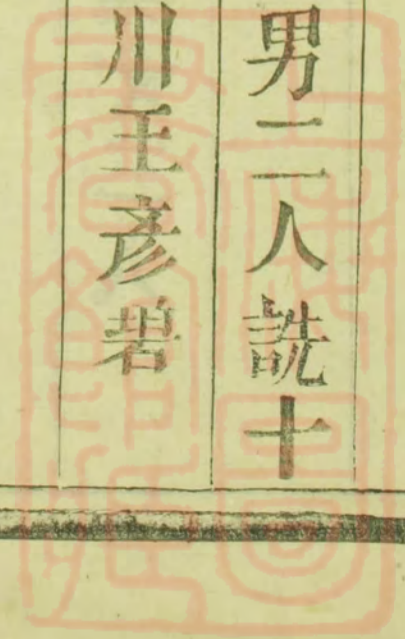 男二人詵十
川王彥碧